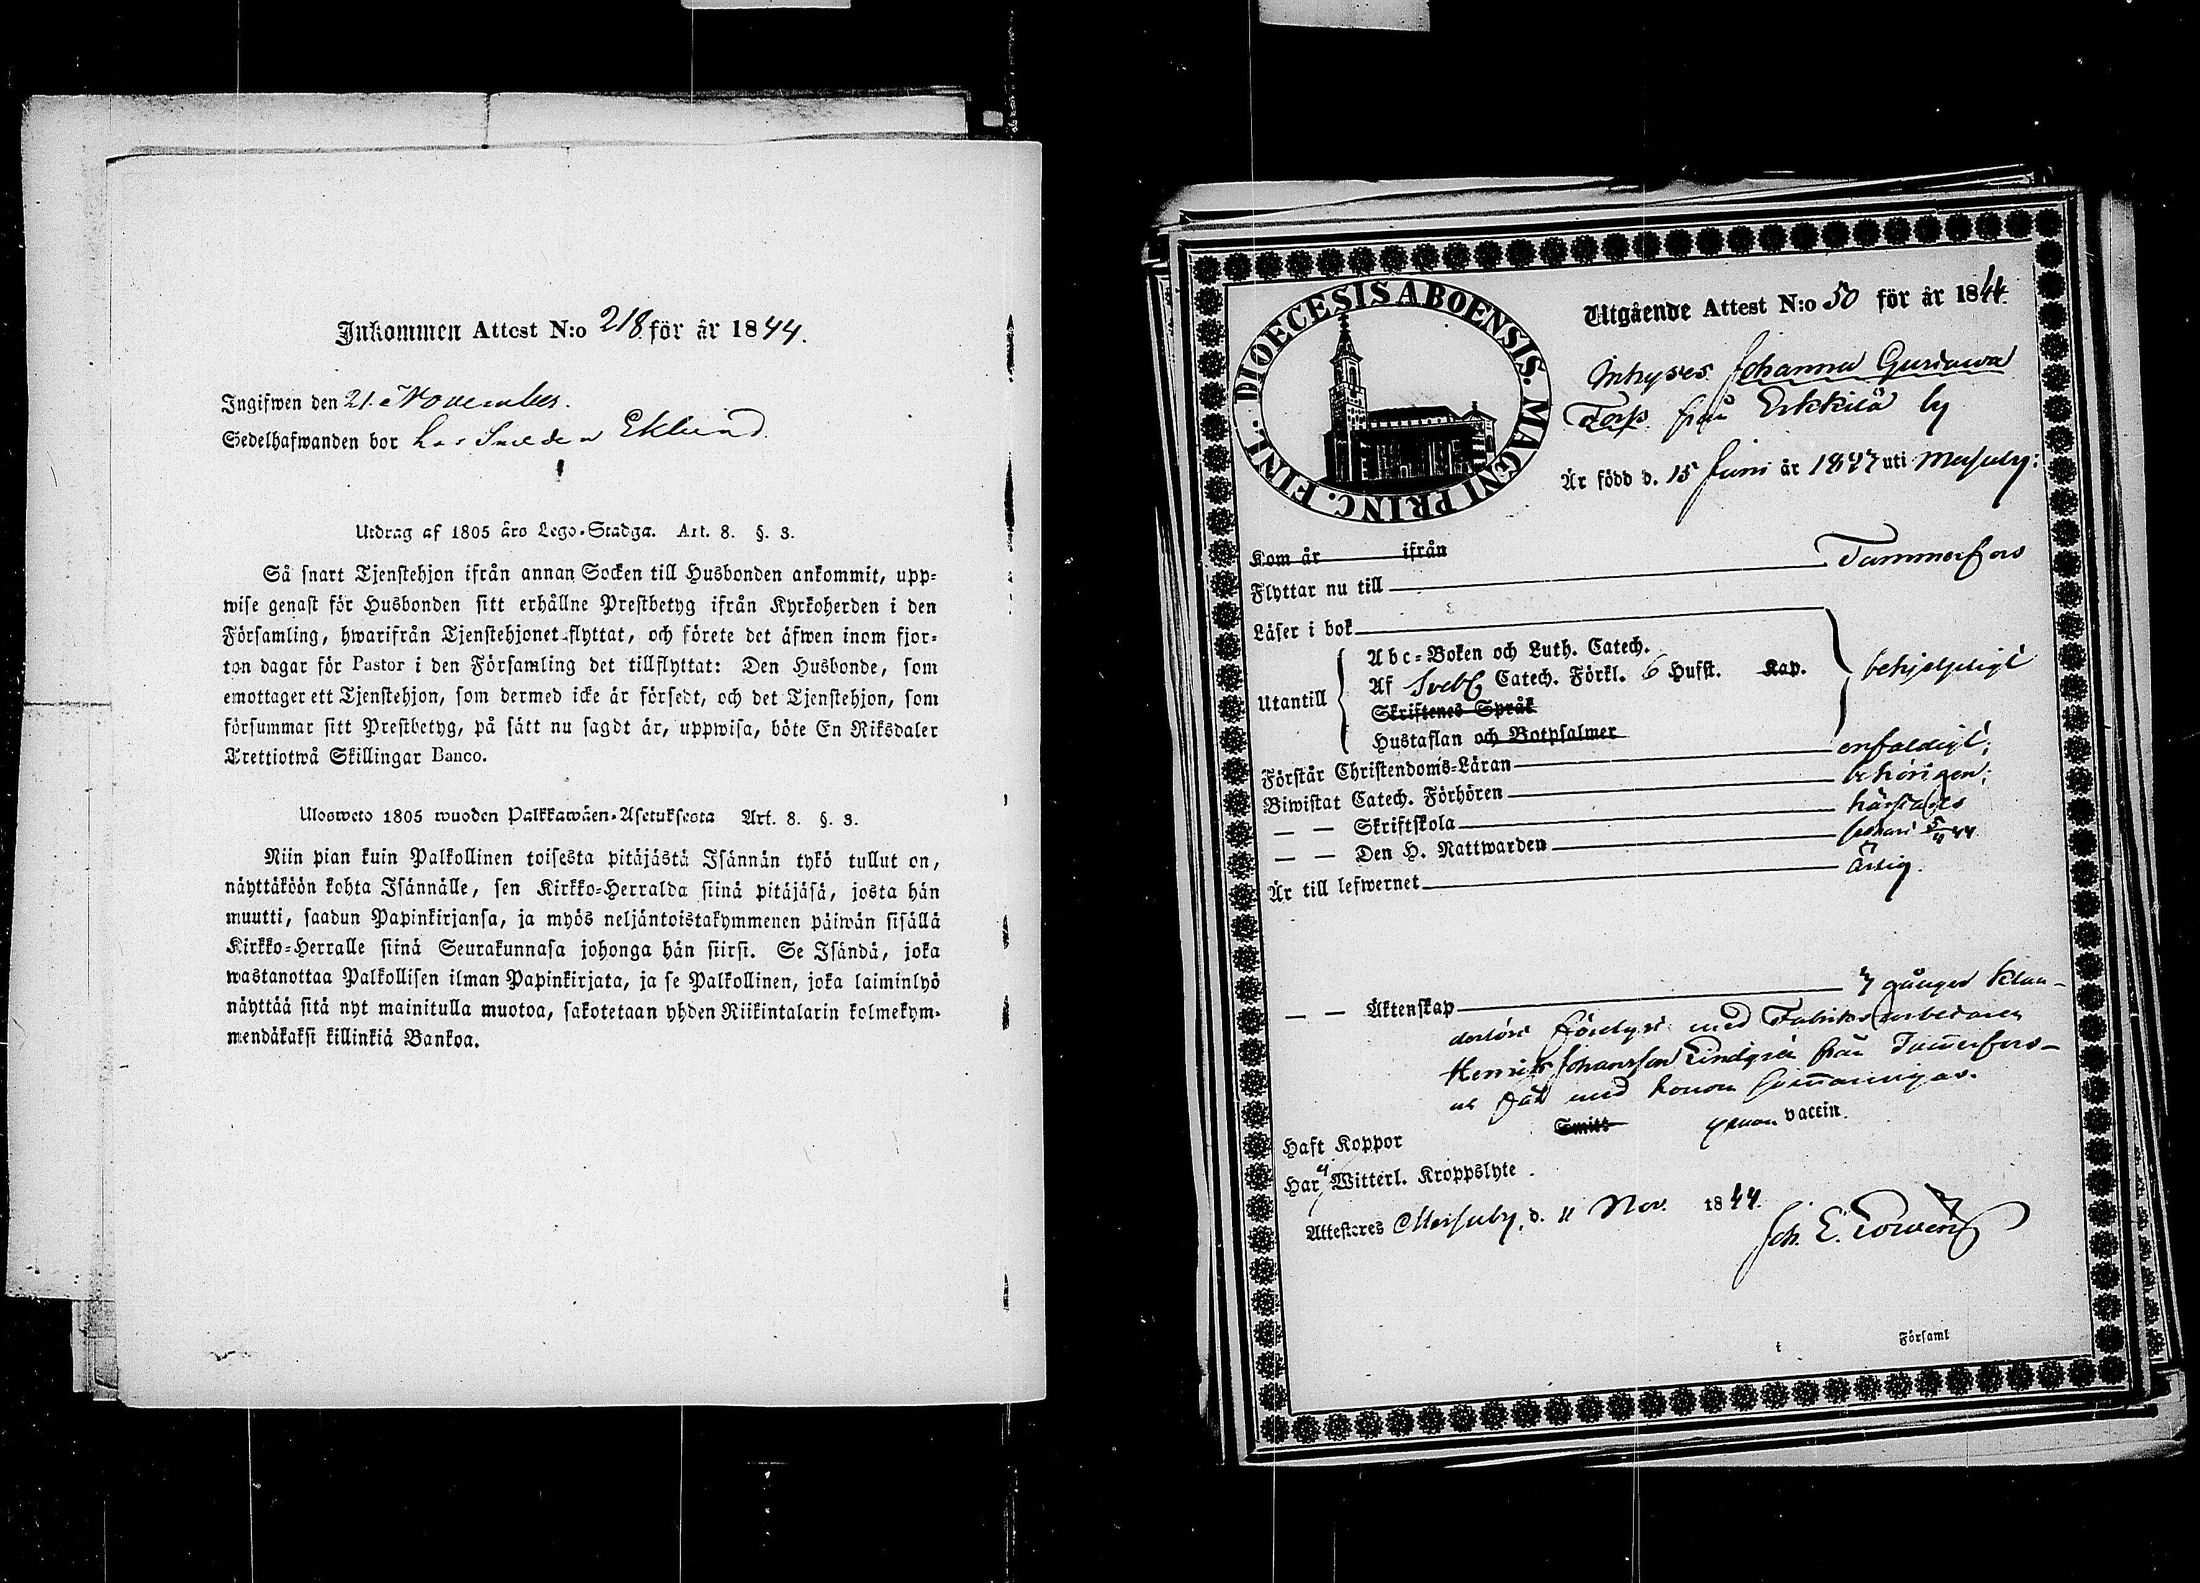 Inkommen Attest N:o 218 för år 1844.
Ingifwen den 21. November.
Sedelhafwanden bor hos Smeden Eklund.
Utdrag af 1805 års Lego-Stadga. Art. 8. §. 3.
Så snart Tjenstehjon ifrån annan Socken till Husbonden ankommit, upp-
wise genast för Husbonden sitt erhållne Prestbetyg ifrån Kyrkoherden i den
Församling, hwarifrån Tjenstehjonet flyttat, och förete det äfwen inom fjor-
ton dagar för Pastor i den Församling det tillflyttat: Den Husbonde, som
emottager ett Tjenstehjon, som dermed icke är försedt, och det Tjenstehjon, som
försummar sitt Prestbetyg, på sätt nu sagdt är, uppwisa, böte En Riksdaler
Trettiotwå Skillingar Banco.
Ulosweto 1805 wuoden Palkkawäen-Asetuksesta Art. 8. §. 3.
Niin pian kuin Palkollinen toisesta pitäjästä Isännän tykö tullut on,
näyttäköön kohta Isännälle, sen Kirkko-Herralda siinä pitäjäsä, josta hän
muutti, saadun Papinkirjansa, ja myös neljäntoistakymmenen päiwän sisällä
Kirkko-Herralle siinä Seurakunnasa johonga hän siirsi. Se Isändä, joka
wastanottaa Palkollisen ilman Papinkirjata, ja se Palkollinen, joka laiminlyö
näyttää sitä nyt mainitulla muotoa, sakotetaan yhden Riikintalarin kolmekym-
mendäkaksi killinkiä Bankoa.
DIOECESIS ABOENSIS. MAGNI PRINC. FINL.
Utgående Attest N:o 50 för år 1844.
Inhyses Johanna Gustawa
från Erkkilä by
Är född d. 15 Juni år uti Messuby:
Kom år ifrån
Flyttar nu till Tammerfors
Läser i bok
Utantill
Abc-Boken och Luth. Catech.
Af Sveb. Catech. Förkl. 6 Hufst. Kap.
Skriftenes Språk
Hustaflan och Botpsalmer
behjelpligt
Förstår Christendoms-Läran enfaldigt;
Biwistat Catech. Förhören behörigen;
— — Skriftskola härstädes
— — Den H. Nattwarden senast 5/11 44
Är till lefwernet ärlig.
— — Äktenskap 3 gånger klan-
derlöst förelyst med Fabriksarbetaren
Henrik Johansson Lindgren från Tammerfors
och får med honom sammanvigas.
Haft Koppor Smitt genom vaccin.
Har ej Witterl. Kroppslyte.
Attesteres Messuby, d. 11 Nov. 1844.
Joh. E.
Församl